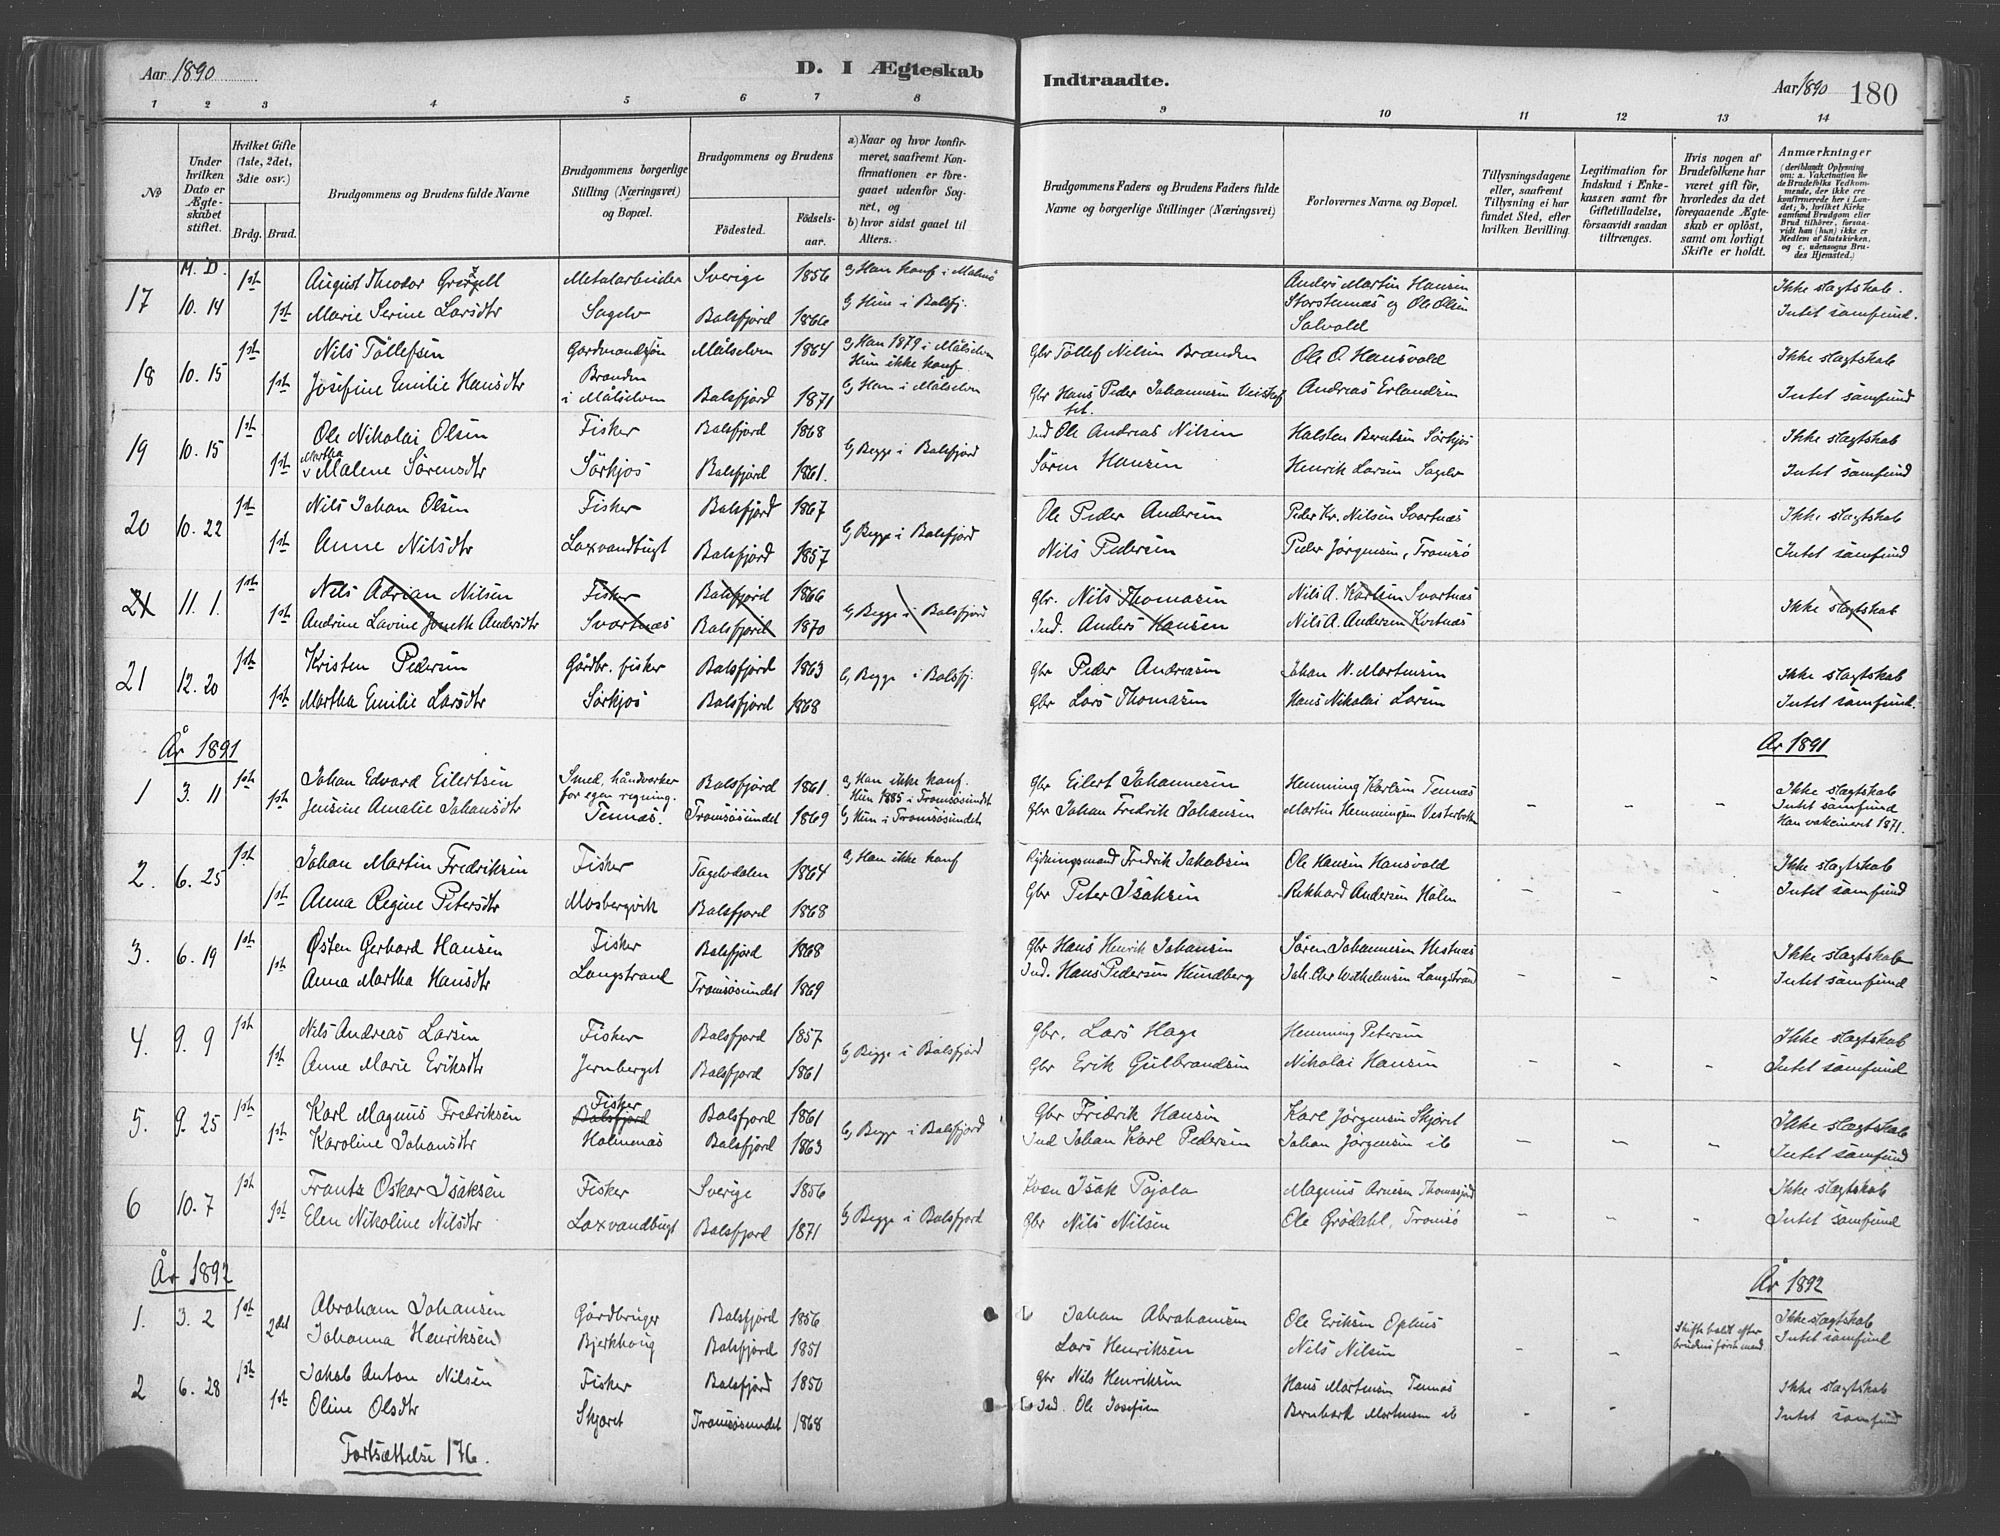 Aar 1890
D. I Ægteskab
Indtraadte.
Aar 1890
180
1 2 3 4 5 6 7 8
9 10 11 12 13 14
№
Under hvilken Dato er Ægteskabet stiftet.
Hvilket Gifte (1ste, 2det, 3die osv.)
Brdg. Brud.
Brudgommens og Brudens fulde Navne
Brudgommens borgerlige Stilling (Næringsvei) og Bopæl.
Brudgommens og Brudens
Fødested. Fødselsaar.
a) Naar og hvor konfirmeret, saafremt Konfirmationen er foregaaet udenfor Sognet, og
b) hvor sidst gaaet til Alters.
Brudgommens Faders og Brudens Faders fulde Navne og borgerlige Stillinger (Næringsvei)
Forlovernes Navne og Bopæl.
Tillysningsdagene eller, saafremt Tillysning ei har fundet Sted, efter hvilken Bevilling.
Legitimation for Indskud i Enkekassen samt for Giftetilladelse, forsaavidt saadan tiltrænges.
Hvis nogen af Brudefolkene har været gift før, hvorledes da det foregaaende Ægteskab er opløst, samt om lovligt Skifte er holdt.
Anmærkninger
(deriblandt Oplysning om: a. Vakcination for de Brudefolks Vedkommende, der ikke ere konfirmerede her i Landet; b. hvilket Kirkesamfund Brudgom eller Brud tilhører, forsaavidt han (hun) ikke er Medlem af Statskirken, og c. udensogns Brudes Hjemsted.)
M. D.
17 10. 14 1st August Theodor Metalarbeider Sverige 1856 a, Han konf i Malmö Anders Martin Hansen Ikke slagtskab.
1st Marie Serine Larsdtr Sagelv Balsfjord 1866 b, Hun i Balsfj. Storstennæs og Ole Olsen Intet samfund.
18 10. 15 1st Nils Tollefsen Gardmandssøn Målselven 1864 a, Han 1879 i Målselven Gbr Tollef Nilsen Branden Ole O. Hansvold Ikke slagtskab
Hun ikke konf.
1st Josefine Emilie Hansdtr Branden i Målselven Balsfjord 1871 b, Han i Målselven Gbr Hans Peder Johannesen Andreas Erlandsen Intet samfund
19 10. 15 1st Ole Nikolai Olsen Fisker Balsfjord 1868 b, Begge i Balsfjord Ind Ole Andreas Nilsen Halsten Berntsen Sørkjos Ikke slagtskab
Martha
1st v Malene Sørensdtr Sørkjos Balsfjord 1861. Søren Hansen Henrik Larsen Sagelv Intet samfund
20 10. 22 1st Nils Johan Olsen Fisker Balsfjord 1867 b, Begge i Balsfjord Ole Peder Andersen Peder Kr. Nilsen Svartnæs Ikke slagtskab
1st Anne Nilsdtr Laxvandbugt Balsfjord 1857 Nils Pedersen Peder Jørgensen, Tromsø Intet samfund
21 11. 1. 1st Nils Adrian Nilsen Fisker Balsfjord 1866 b, Begge i Balsfjord gbr. Nils Thomasen Nils A. Karlsen Svartnæs Ikke slagtskab
1st Andrine Lavine Jonette Andersdtr Svartnæs Balsfjord 1870 Ind. Anders Hansen Nils A. Andersen
21 12. 20 1st Kristen Pedersen Gårdbr. fisker Balsfjord 1863 b, Begge i Balsfj. gbr Peder Andreasen Johan N. Mortensen Ikke slagtskab
1st Martha Emilie Larsdtr Sørkjos Balsfjord 1868 gbr Lars Thomasen Hans Nikolai Larsen Intet samfund.
År 1891 År 1891
1 3. 11 1st Johan Edvard Eilertsen Smed, håndværker Balsfjord 1861. a, Han ikke konf. gbr Eilert Johannesen Hemming Karlsen Tennæs Ikke slagtskab
for egen regning. Hun 1885 i Tromsøsundet Intet samfund
1st Jensine Amalie Johansdtr Tennæs. Tromsøsundet 1869 b, Hun i Tromsøsundet gbr Johan Fredrik Johansen Martin Hemmingsen Vesterbotn Han vakcineret 1871.
2. 6. 25 1st Johan Martin Fredriksen Fisker Tagelvdalen 1864 a, Han ikke konf Rydningsmand Fredrik Jakobsen Ole Hansen Hansvold Ikke slagtskab
1st Anna Regine Petersdtr Mosbergvik Balsfjord 1868 gbr Peter Isaksen Rikhard Andersen Holm Intet samfund
3. 6. 19 1st Østen Gerhard Hansen Fisker Balsfjord 1868 gbr Hans Henrik Johansen Søren Johannesen Ikke slagtskab
1st Anna Martha Hansdtr Langstrand Tromsøsundet 1869 Ind. Hans Pedersen Hundberg Joh. Chr Wilhelmsen Langstrand Intet samfund
4. 9. 9 1st Nils Andreas Larsen Fisker Balsfjord 1857 b, Begge i Balsfjord gbr. Lars Hage Hemming Petersen Ikke slagtskab
1st Anne Marie Eriksdtr Jernberget Balsfjord 1861 gbr Erik Gulbrandsen Nikolai Hansen Intet samfund
5. 9. 25 1st Karl Magnus Fredriksen Fisker Balsfjord Balsfjord 1861 b, Begge i Balsfjord gbr Fridrik Hansen Karl Jørgensen Skjøret Ikke slagtskab
1st Karoline Johansdtr Holmenæs Balsfjord 1863 Ind Johan Karl Pedersen Johan Jørgensen ib Intet samfund
6 10. 7 1st Frantz Oskar Isaksen Fisker Sverige 1856 b, Begge i Balsfjord Kvæn Isak Pajala Magnus Arnesen Thomasjord Ikke slagtskab
1st Elen Nikoline Nilsdtr Laxvandbugt Balsfjord 1871 gbr Nils Nilsen Ole Grødahl, Tromsø Intet samfund
År 1892 År 1892
1. 3. 2 1st Abraham Johansen Gårdbruger Balsfjord 1856. Johan Abrahamsen Ole Eriksen Ophus Skifte holdt efter Ikke slagtskab
2det Johanna Henriksen Bjerkhoug Balsfjord 1851 Lars Henriksen Nils Nilsen brudens første mand Intet samfund
2 6. 28 1st Jakob Anton Nilsen Fisker Balsfjord 1850 gbr Nils Henriksen Hans Mortensen Tennæs Ikke slagtskab
1st Oline Olsdtr Skjøret Tromsøsundet 1868 Ind. Ole Josefsen Bernhard Mortensen ib Intet samfund
Fortsættelse 176.